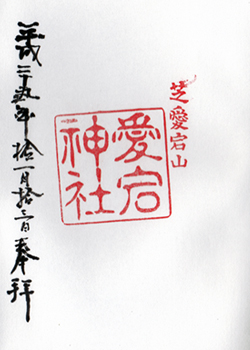 芝愛宕山
愛宕
神社
平成二十五年拾一月拾三日奉拝